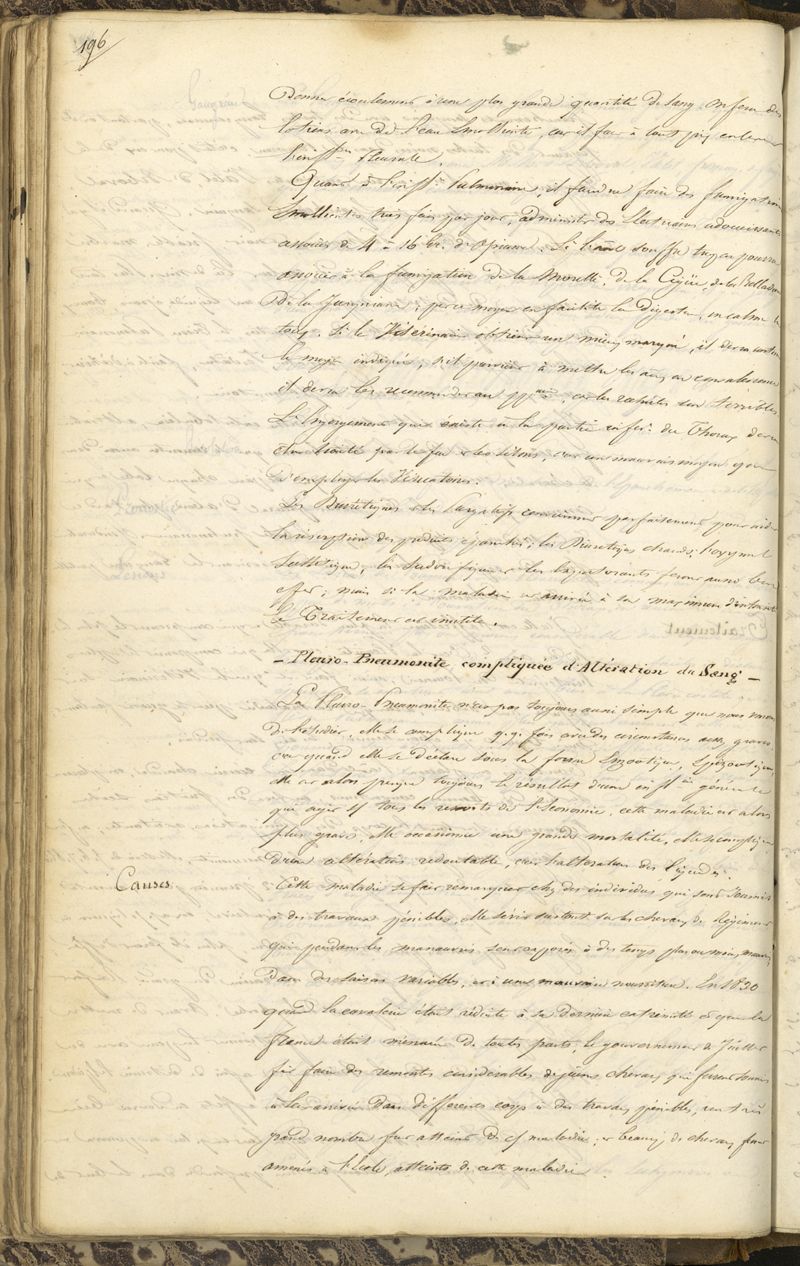 196
Donner écoulement à une plus grande quantité de sang. On fera des
lotions avec de l'eau émolliente, car il faut à tout prix enlever
l'infl.on Pleurale.
Quant à l'infl.on Pulmonaire, il faudra faire des fumigations
émollientes trois fois par jour, administrer des Electuaires adoucissants
associés de 4 à 16 gr. d'opium. Si l'animal souffre trop on pourra
associer à la fumigation de la Morelle, de la Cigüe, de la Belladone
De la Jusquiame; par ce moyen on facilite la Digestion, on calme la
toux. Si le Vétérinaire obtient un mieux marqué, il devra continuer
le moyen indiqué; s'il parvient à mettre les anx en convalescence
il devra les recommander au pp.re, car les rechutes sont terribles.
L'Engorgement qui existe à la partie infer.e du Thorax devra
être traité par le feu et les sétons, c'est un mauvais moyen que
d'employer les Vésicatoires.
Les Diurétiques et les Purgatifs conviennent parfaitement pour aider
la résorption des produits épanchés; les Diurétiques chauds, l'oxymel
scillitique, les sudorifiques et les expectorants feront aussi bon
effet; mais si la maladie est arrivée à son maximum d'intensité
le Traitement est inutile.
- Pleuro-Pneumonite compliquée d'Altération du Sang -
La Pleuro-Pneumonite n'est pas toujours aussi simple que nous venons
De l'étudier. Elle se complique q.q. fois avec des circonstances assez graves.
car quand elle se déclare sous la forme Enzootique, Epizootique,
elle est alors presque toujours le résultat d'une infl.on générale
qui agit sur tous les ressorts de l'Economie, cette maladie est alors
plus grave, elle occasionne une grande mortalité, elle se complique
d'une altération redoutable, c'est l'altération des liquides.
Causes
Cette maladie se fait remarquer chez des individus qui sont soumis
à des travaux pénibles. Elle sévit surtout sur les chevaux de Régiment
qui pendant les manœuvres sont exposés à des temps plus ou moins mauvais,
Dans des saisons variables, et à une mauvaise nourriture. En 1830
quand la cavalerie était réduite à sa dernière extrémité et que la
France était menacée de toutes parts, le gouvernement de Juillet
fit faire des remontes considérables de jeunes chevaux qui furent soumis
à leur arrivée dans differents corps à des travaux pénibles, un très
grand nombre fut atteint de cette maladie; et beaucoup de chevaux furent
amenés à l'école atteints de cette maladie.